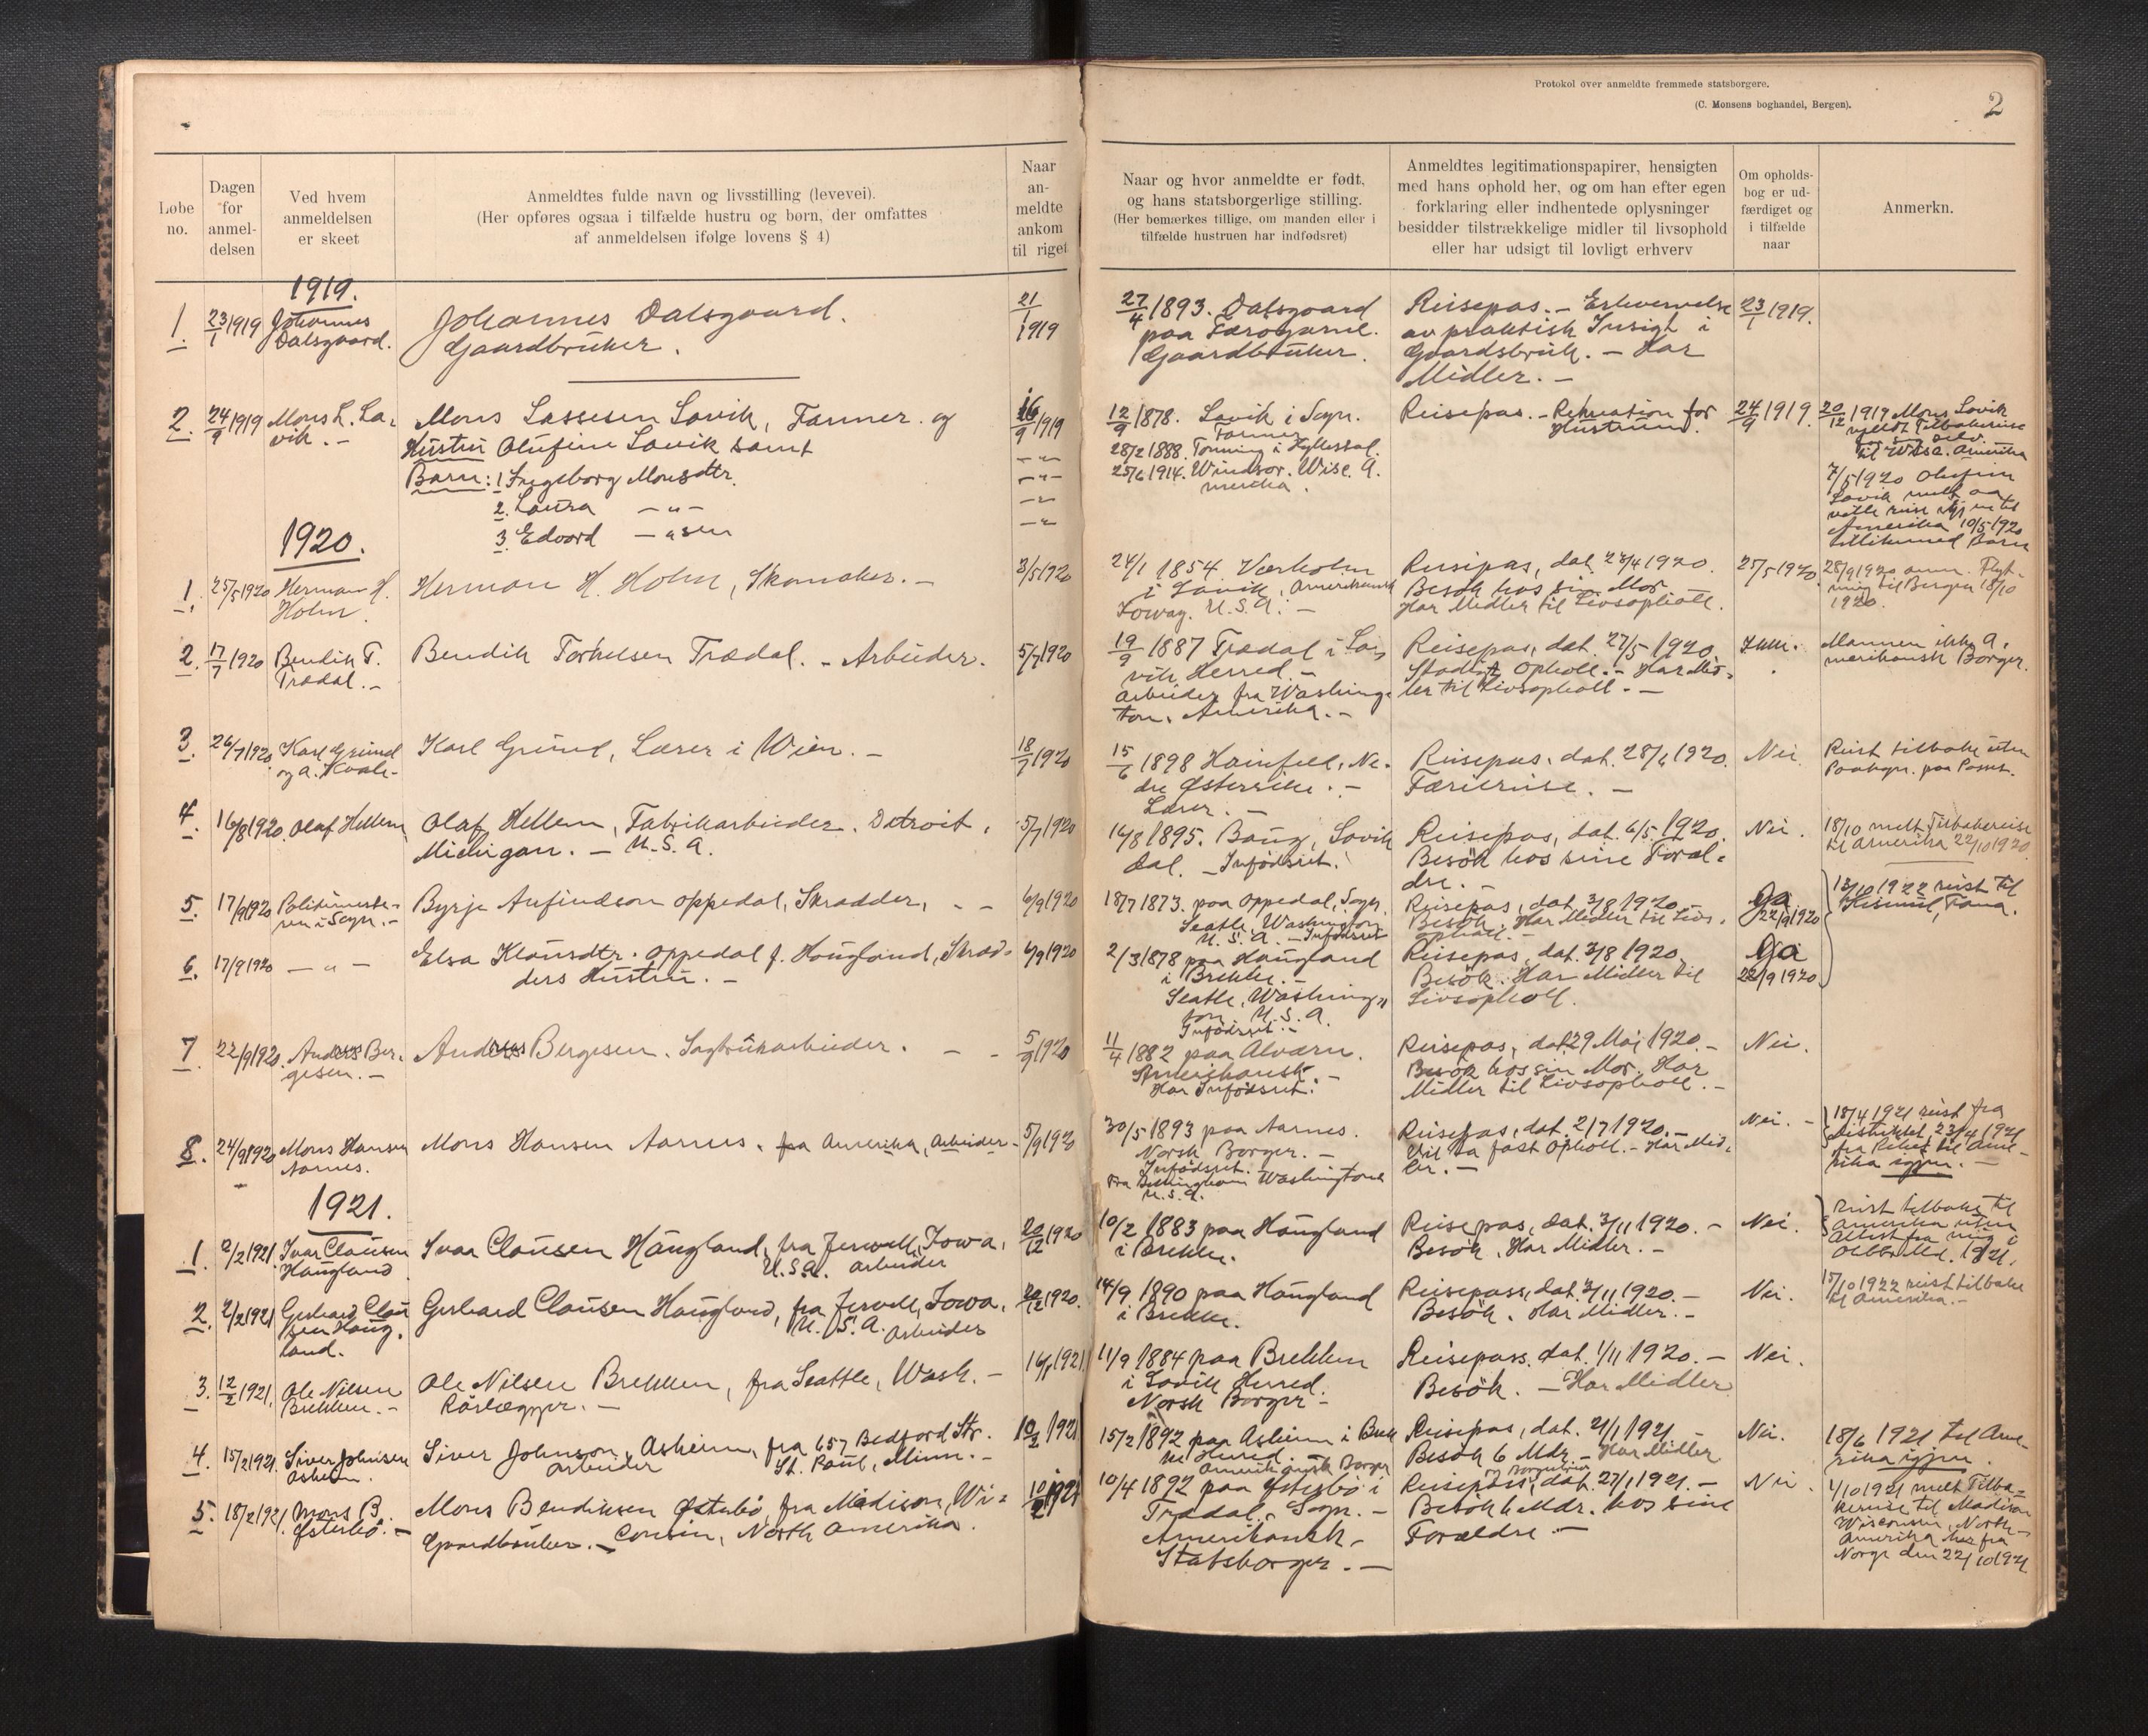 Protokol over anmeldte fremmede statsborgere.
(C. Monsens boghandel, Bergen).
2
Løbe no.
Dagen for anmeldelsen
Ved hvem anmeldelsen er skeet
Anmeldtes fulde navn og livsstilling (levevei).
(Her opføres ogsaa i tilfælde hustru og børn, der omfattes
af anmeldelsen ifølge lovens § 4)
Naar anmeldte ankom til riget
Naar og hvor anmeldte er født,
og hans statsborgerlige stilling.
(Her bemærkes tillige, om manden eller i
tilfælde hustruen har indfødsret)
Anmeldtes legitimationspapirer, hensigten
med hans ophold her, og om han efter egen
forklaring eller indhentede oplysninger
besidder tilstrækkelige midler til livsophold
eller har udsigt til lovligt erhverv
Om opholdsbog er udfærdiget og i tilfælde naar
Anmerkn.
1919.
1. 23/1 1919 Johannes
Dalsgaard.
Johannes Dalsgaard.
Gaardbruker.
21/1 1919
27/4 1893. Dalsgaard
paa Færøgarne.
Gaardbruker.
Reisepas. – Erhvervelse
av praktisk Insigt i
Gaardsbruk. – Har
Midler. –
23/1 1919.
2. 24/9 1919 Mons L. La-
vik. –
Mons Lassesen Lavik, Farmer. og
Hustru Olufine Lavik samt
Barn: 1 Ingeborg Monsdtr.
2. Laura – " –
3. Edvard – " sen
16/9 1919
12/9 1878. Lavik i Sogn.
Farmer
28/2 1888. Tønning i Hyllestad.
25/6 1914. Windsor. Wisc. A-
merika.
Reisepas. – Rekreation for
Hustruen.
24/9 1919.
20/12 1919 Mons Lavik
meldt Tilbakereise
for sig selv
til Wisc. Amerika
7/5 1920 Olufine
Lavik meldt aa
ville reise igjen til
Amerika 10/5 1920
tillikemed Barn
1920.
1. 25/5 1920 Herman H.
Holm.
Herman H. Holm, Skomaker. –
3/5 1920
24/1 1854 Værholm
i Lavik, Amerikansk
Torvag. U.S.A. –
Reisepas, dat. 23/4 1920.
Besøk hos sin Mor.
Har Midler til Livsopholl.
25/5 1920.
28/9 1920 anm. Flyt-
ning til Bergen 18/10
1920.
2. 17/7 1920 Bendik T.
Trædal. –
Bendik Torkelsen Trædal. – Arbeider.
5/7 1920
19/9 1887 Trædal i La-
vik Herred. –
arbeider fra Washing-
ton. Amerika. –
Reisepas, dat. 27/5 1920.
Stadigt Opholl. – Har Mid-
ler til Livsopholl. –
Mannen ikke A-
merikansk Borger.
3. 26/7 1920 Karl Grund
og A. Kvale –
Karl Grund, Lærer i Wien. –
18/7 1920
15/6 1898 Hainfeld, Ne-
dre Østerrike. –
Lærer. –
Reisepas. dat. 28/6 1920.
Færiereise. –
Nei.
Reist tilbake uten
Paategn. paa Passet.
4. 16/8 1920. Olaf Hellem
Olaf Hellem, Fabrikarbeider. Detroit,
Michigan. – U.S.A.
5/7 1920
16/8 1895. Baug, Lavik
dal. – Infødsret.
Reisepas, dat. 6/5 1920.
Besøk hos sine Foræl-
dre. –
Nei.
18/10 meldt Tilbakereise
til Amerika 22/10 1920.
5. 17/9 1920 Politimeste-
ren i Sogn. –
Byrje Anfindson Oppedal, Skrædder, – –
6/9 1920
18/7 1873. paa Oppedal, Sogn.
Seatle, Washington
U.S.A. – Infødsret
Reisepas, dat. 3/8 1920 –
Besøk. Har Midler til Livs-
opholl. –
Ja
22/9 1920
13/10 1922 reist til
6. 17/9 1920 – " –
Elsa Klausdtr. Oppedal f. Haugland, Skræd-
ders Hustru. –
6/9 1920
2/3 1878 paa Haugland
i Brekke. –
Seatle, Washing-
ton. U.S.A.
Infødsret. –
Reisepas, dat. 3/8 1920.
Besøk. Har Midler til
Livsopholl.
Ja
22/9 1920
7. 22/9 1920. Andreas Ber-
gesen. –
Andreas Bergesen. Sagbrukarbeider. – –
5/9 1920
11/4 1882 paa Alværn.
Amerikansk. –
Har Infødsret.
Reisepas, dat. 29 Mai 1920. –
Besøk hos sin Mor. Har
Midler til Livsopholl. –
Nei.
8. 24/9 1920 Mons Hansen
Aarnes.
Mons Hansen Aarnes. fra Amerika, Arbeider –
5/9 1920
30/5 1893 paa Aarnes.
Norsk Borger. –
Infødsret.
Fra Bellingham Washington
U.S.A.
Reisepas, dat. 2/7 1920. –
Vil ta fast Opholl. – Har Mid-
ler. –
Nei. –
18/4 1921 reist fra
Distriktet, 23/4 1921
fra Riket til Ame-
rika igjen. –
1921.
1. 2/2 1921. Ivar Clausen
Haugland
Ivar Clausen Haugland, fra Jewell, Iowa,
U.S.A. arbeider
20/12 1920
10/2 1883 paa Haugland
i Brekke.
Reisepas, dat. 3/11 1920. –
Besøk. Har Midler. –
Nei.
Reist tilbake til
Amerika uten
Attest fra mig i
1921.
2. 2/2 1921 Gerhard Clau
sen Haug-
land.
Gerhard Clausen Haugland, fra Jewell, Iowa,
U.S.A. arbeider
20/12 1920.
14/9 1890 paa Haugland
i Brekke.
Reisepass, dat. 3/11 1920. –
Besøk. Har Midler. –
Nei.
15/10 1922 reist tilbake
til Amerika. –
3. 12/2 1921. Ole Nilsen
Brekken. –
Ole Nilsen Brekken, fra Seattle, Wash. –
Rørlægger. –
16/1 1921
11/9 1884 paa Brekken
i Lavik Herred.
Norsk Borger –
Reisepass. dat. 1/11 1920. –
Besøk. – Har Midler
Nei.
4. 15/2 1921. Siver Johnsen
Asheim.
Siver Johnson, Asheim, fra 657 Bedford Str.
arbeider St. Paul, Minn. –
10/2 1921
15/2 1892 paa Asheim i Brek
ke Herred. –
Amerikansk Borger
Reisepas, dat. 21/1 1921. –
Besøk 6 Mdr. – Har Midler
Nei.
18/6 1921 til Ame-
rika igjen.
5. 18/2 1921. Mons B.
Østerbø. –
Mons Bendiksen Østerbø, fra Madison, Wi-
Gaardbruker. – Consin, North Amerika.
10/2 1921
10/4 1892 paa Østerbø i
Trædal, Sogn. –
Amerikansk –
Statsborger. –
Reisepass, dat. 27/1 1921. –
Besøk 6 Mdr. hos sine
Forældre –
Nei.
1/10 1921 meldt Tilba-
kereise til Madison
Wisconsin, North-
Amerika fra
Norge den 22/10 1921